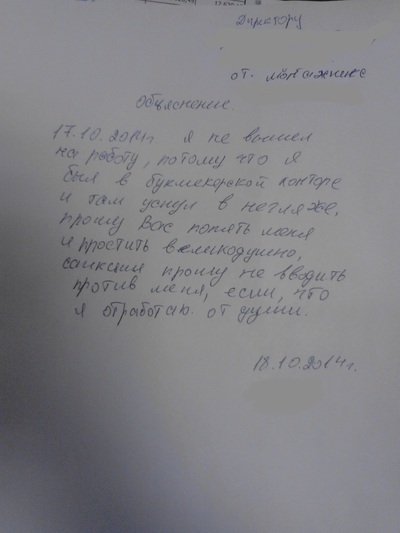 Директору
от монтажника
Объяснение.
17.10.2014г я не вышел
на работу, потому что я
был в букмекерской конторе
и там уснул в негляже,
прошу Вас понять меня
и простить великодушно,
санкции прошу не вводить
против меня, если, что
я отработаю. от души.
18.10.2014г.